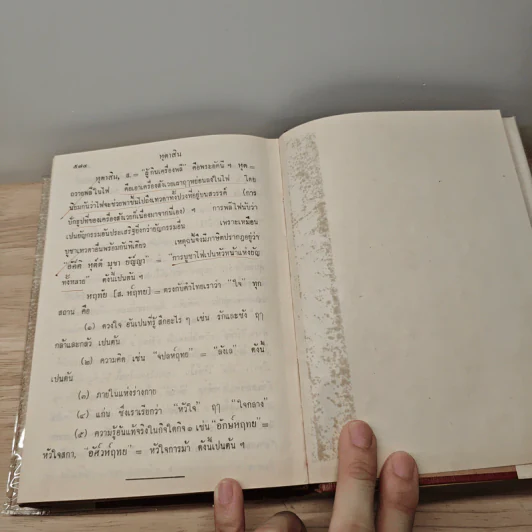 หุตาสิน
หุตาสิน, ส. = "ผู้กินเครื่องพลี" คือพระอัคนี ฯ หุต=
ถวายพลีในไฟ คือเอาเครื่องสังเวยเผาถวายพ่อนลงในไฟ โดย
นิยมกันว่าไฟจะช่วยพาขึ้นไปยังเทวดาทั้งปวงที่อยู่บนสวรรค์ (การ
ปักธูปที่ของเครื่องสังเวยก็เนื่องมาจากนี่เอง) ฯ การพลีไฟนับว่า
เป็นยัญกรรมอันประเสริฐยิ่งกว่ายัญกรรมอื่น เพราะเหมือน
บูชาเทวดาอื่นพร้อมกันทีเดียว เหตุฉะนี้จึงมีภาษิตปรากฏอยู่ว่า
"อัคคิ หุตตํ มุขา ยัญญา" = "การบูชาไฟเป็นหัวหน้าแห่งยัญ
ทั้งหลาย" ดังนี้เป็นต้น ฯ
หฤทัย [ส. หฺฤทย] = ตรงกับคำไทยเราว่า "ใจ" ทุก
สถาน คือ
(๑) ดวงใจ อันเป็นที่รู้สึกอะไร ๆ เช่น รักและชัง ฤๅ
กล้าและกลัว เป็นต้น
(๒) ความคิด เช่น "จปลหฤทย" = "ลังเล" ดังนี้
เป็นต้น
(๓) ภายในแห่งร่างกาย
(๔) แก่น ซึ่งเราเรียกว่า "หัวใจ" ฤๅ "ใจกลาง"
(๕) ความรู้อันแท้จริงในกิจใดกิจ ๑ เช่น "อักษหฤทย" =
หัวใจสกา, "อัศวหฤทย" = หัวใจการม้า ดังนี้เป็นต้น ฯ